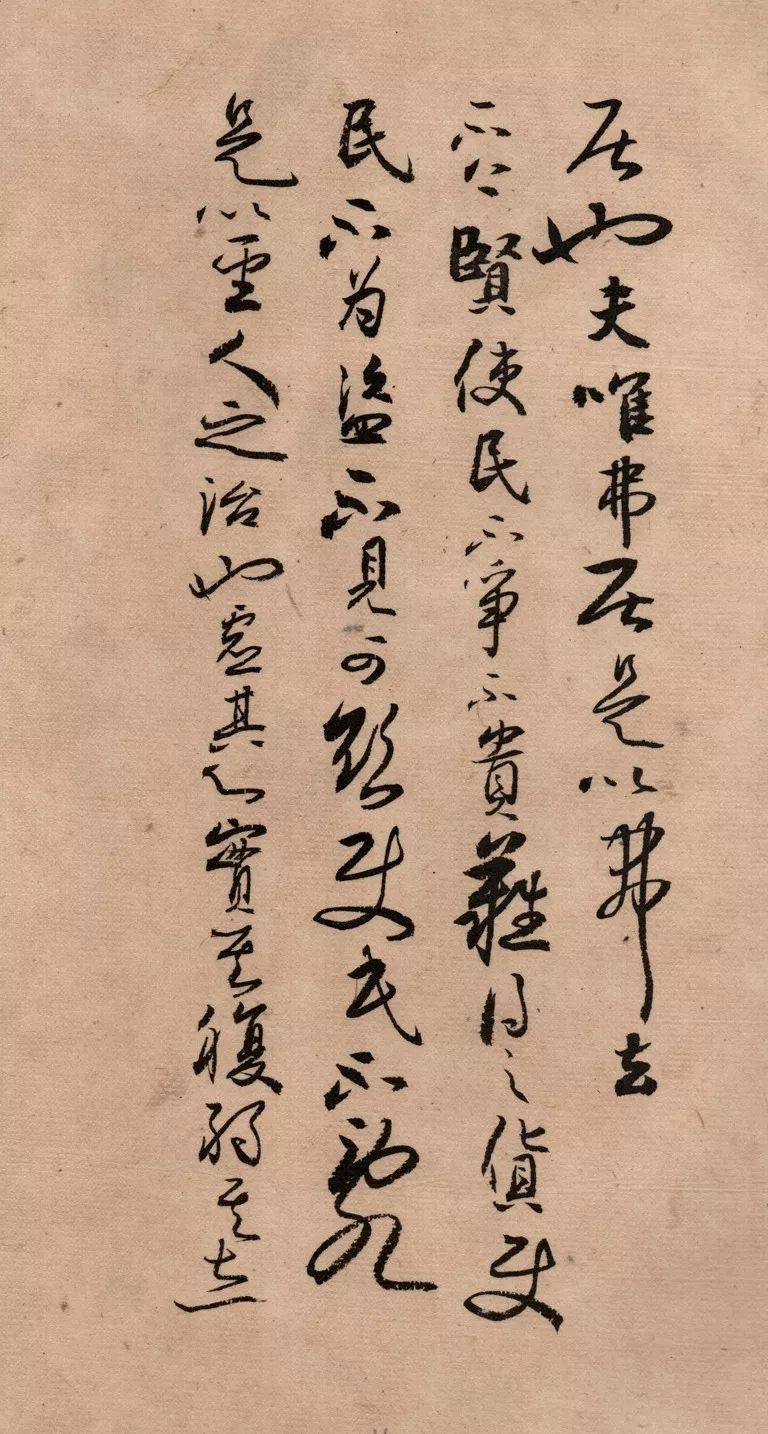 居也夫唯弗居是以弗去
不上賢使民不爭不貴難得之貨使
民不為盜不見可欲使民不亂
是以聖人之治也虛其心實其腹弱其志